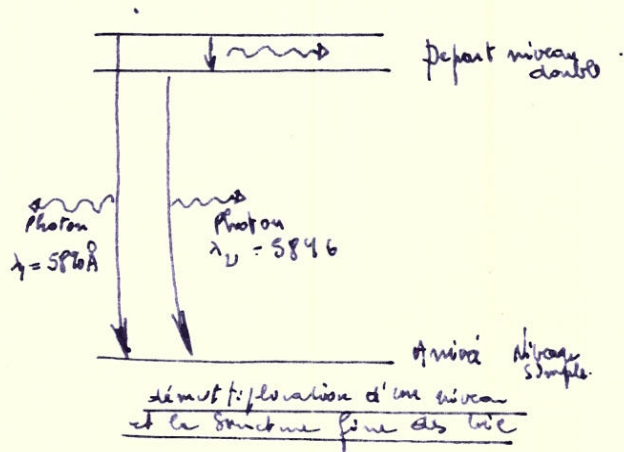 Depart niveau
double
Photon
λ₁ = 5890Å
Photon
λ₂ = 5896
Arrivé Niveau
Simple.
démultiplication d'un niveau
et la structure fine des